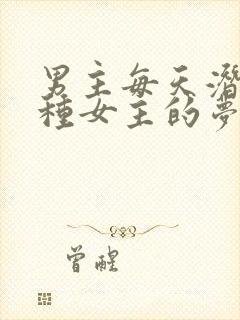 男主每天潛
種女主的夢
曾醒